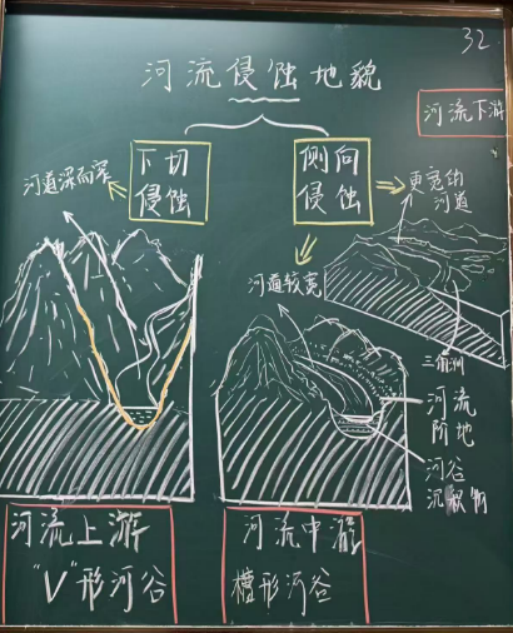 32
河流侵蚀地貌
河流下游
下切
侵蚀
侧向
侵蚀
河道深而窄
更宽的
河道
河道较宽
三角洲
河流
阶地
河谷
沉积物
河流上游
"V"形河谷
河流中游
槽形河谷